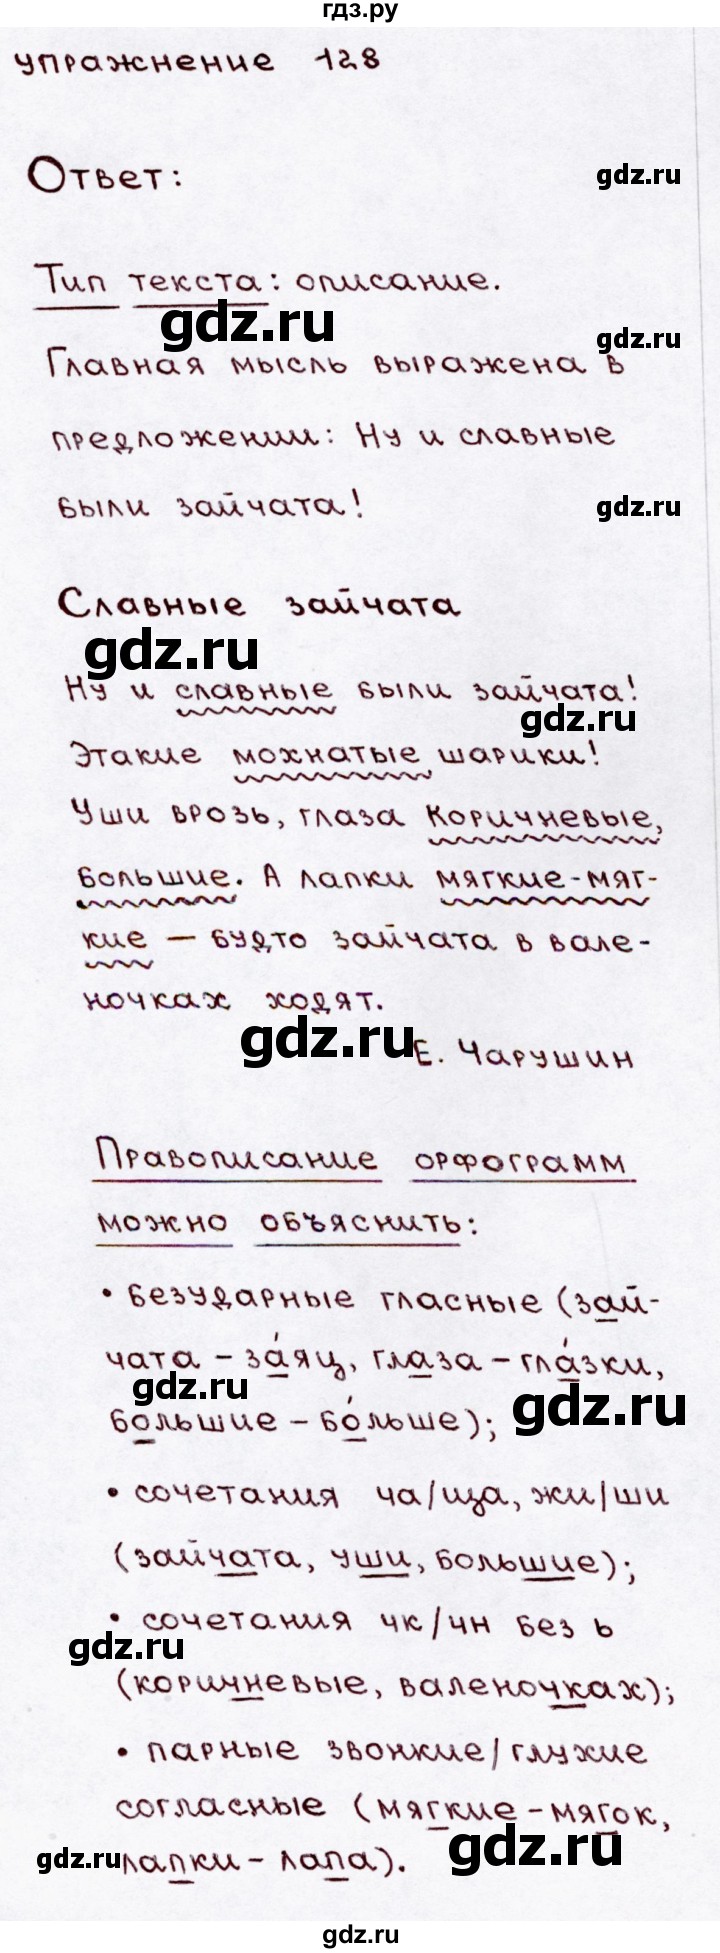 гдз.ру
упражнение 128
Ответ:
gdz.ru
Тип текста: описание.
gdz.ru
gdz.ru
Главная мысль выражена в
предложении: Ну и славные
были зайчата!
gdz.ru
Славные зайчата
gdz.ru
Ну и славные были зайчата!
gdz.ru
Этакие мохнатые шарики!
Уши врозь, глаза коричневые,
большие. А лапки мягкие-мяг-
кие — будто зайчата в вале-
ночках ходят.
gdz.ru
Е. Чарушин
Правописание орфограмм
можно объяснить:
• безударные гласные (зай-
чата - за́яц, глаза - гла́зки,
gdz.ru
gdz.ru
большие - бо́льше);
• сочетания ча/ща, жи/ши
(зайчата, уши, большие);
• сочетания чк/чн без ь
gdz.ru
(коричневые, валеночках);
• парные звонкие/глухие
согласные (мягкие - мягок,
gdz.ru
gdz.ru
лапки - лапа).
gdz.ru